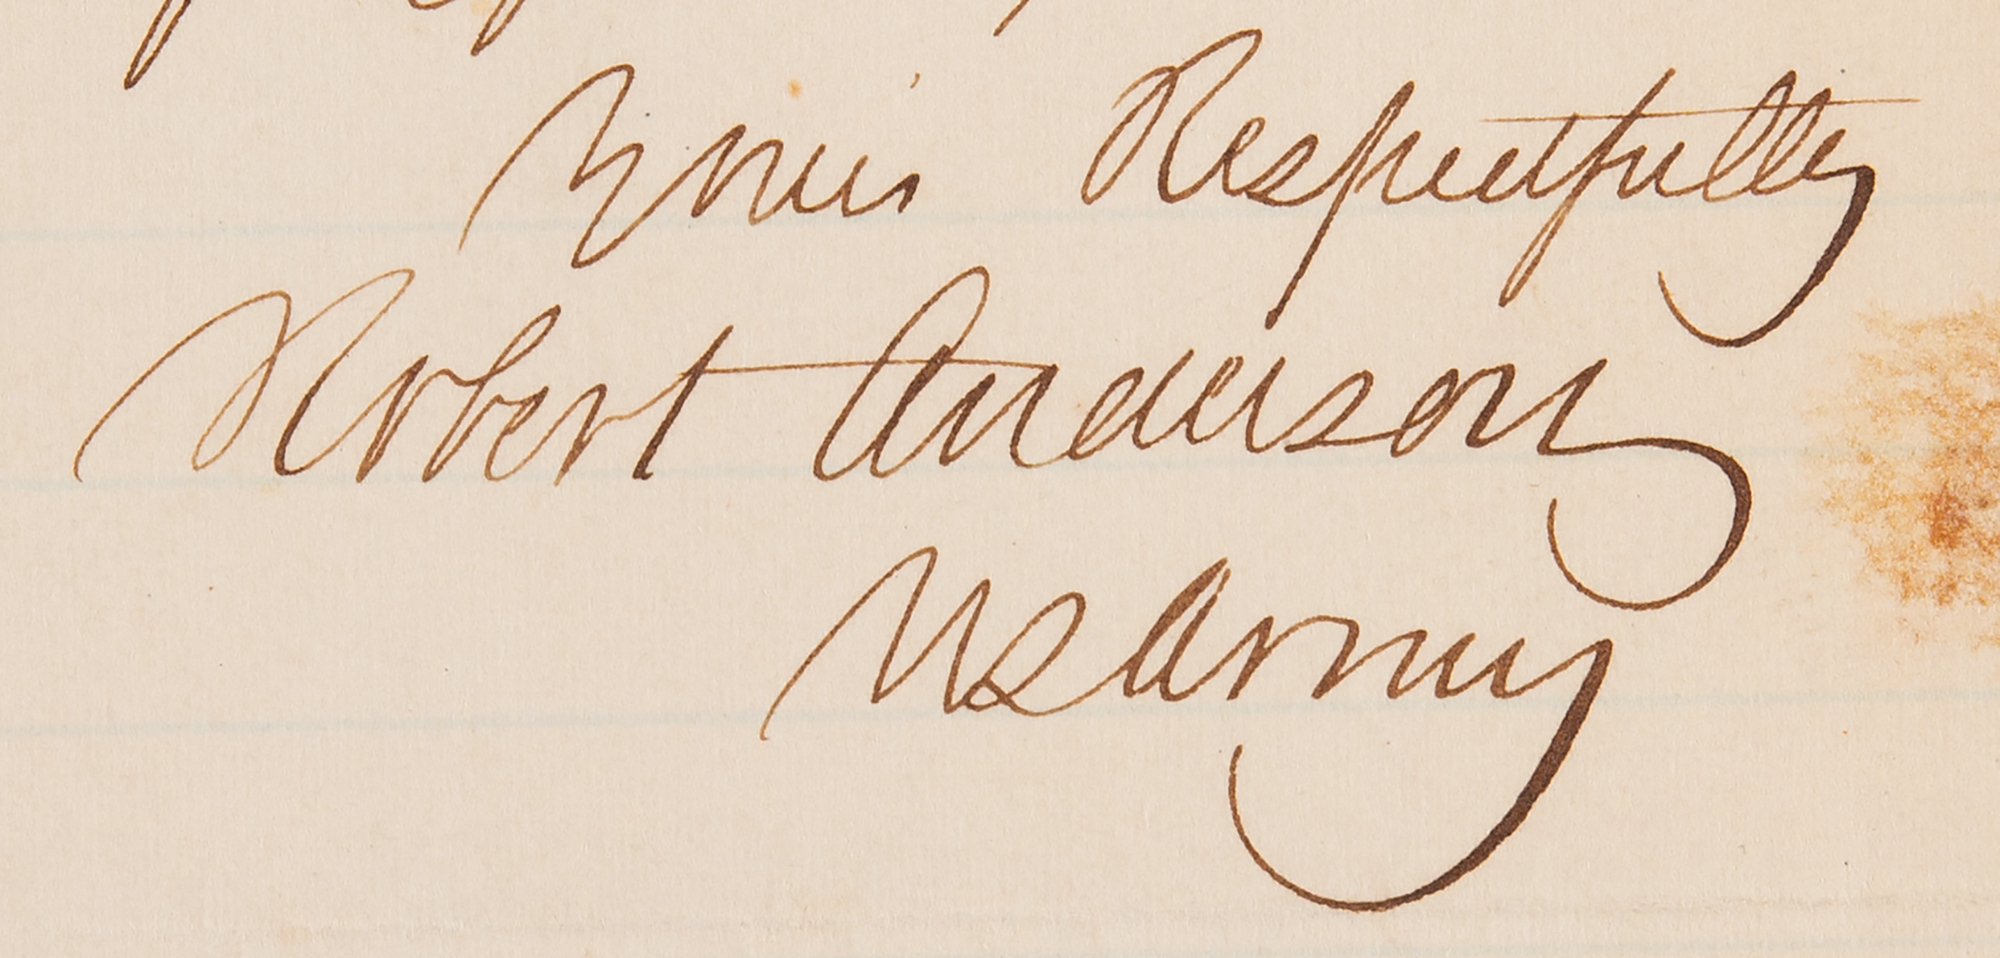 Yours Respectfully
Robert Anderson
US Army